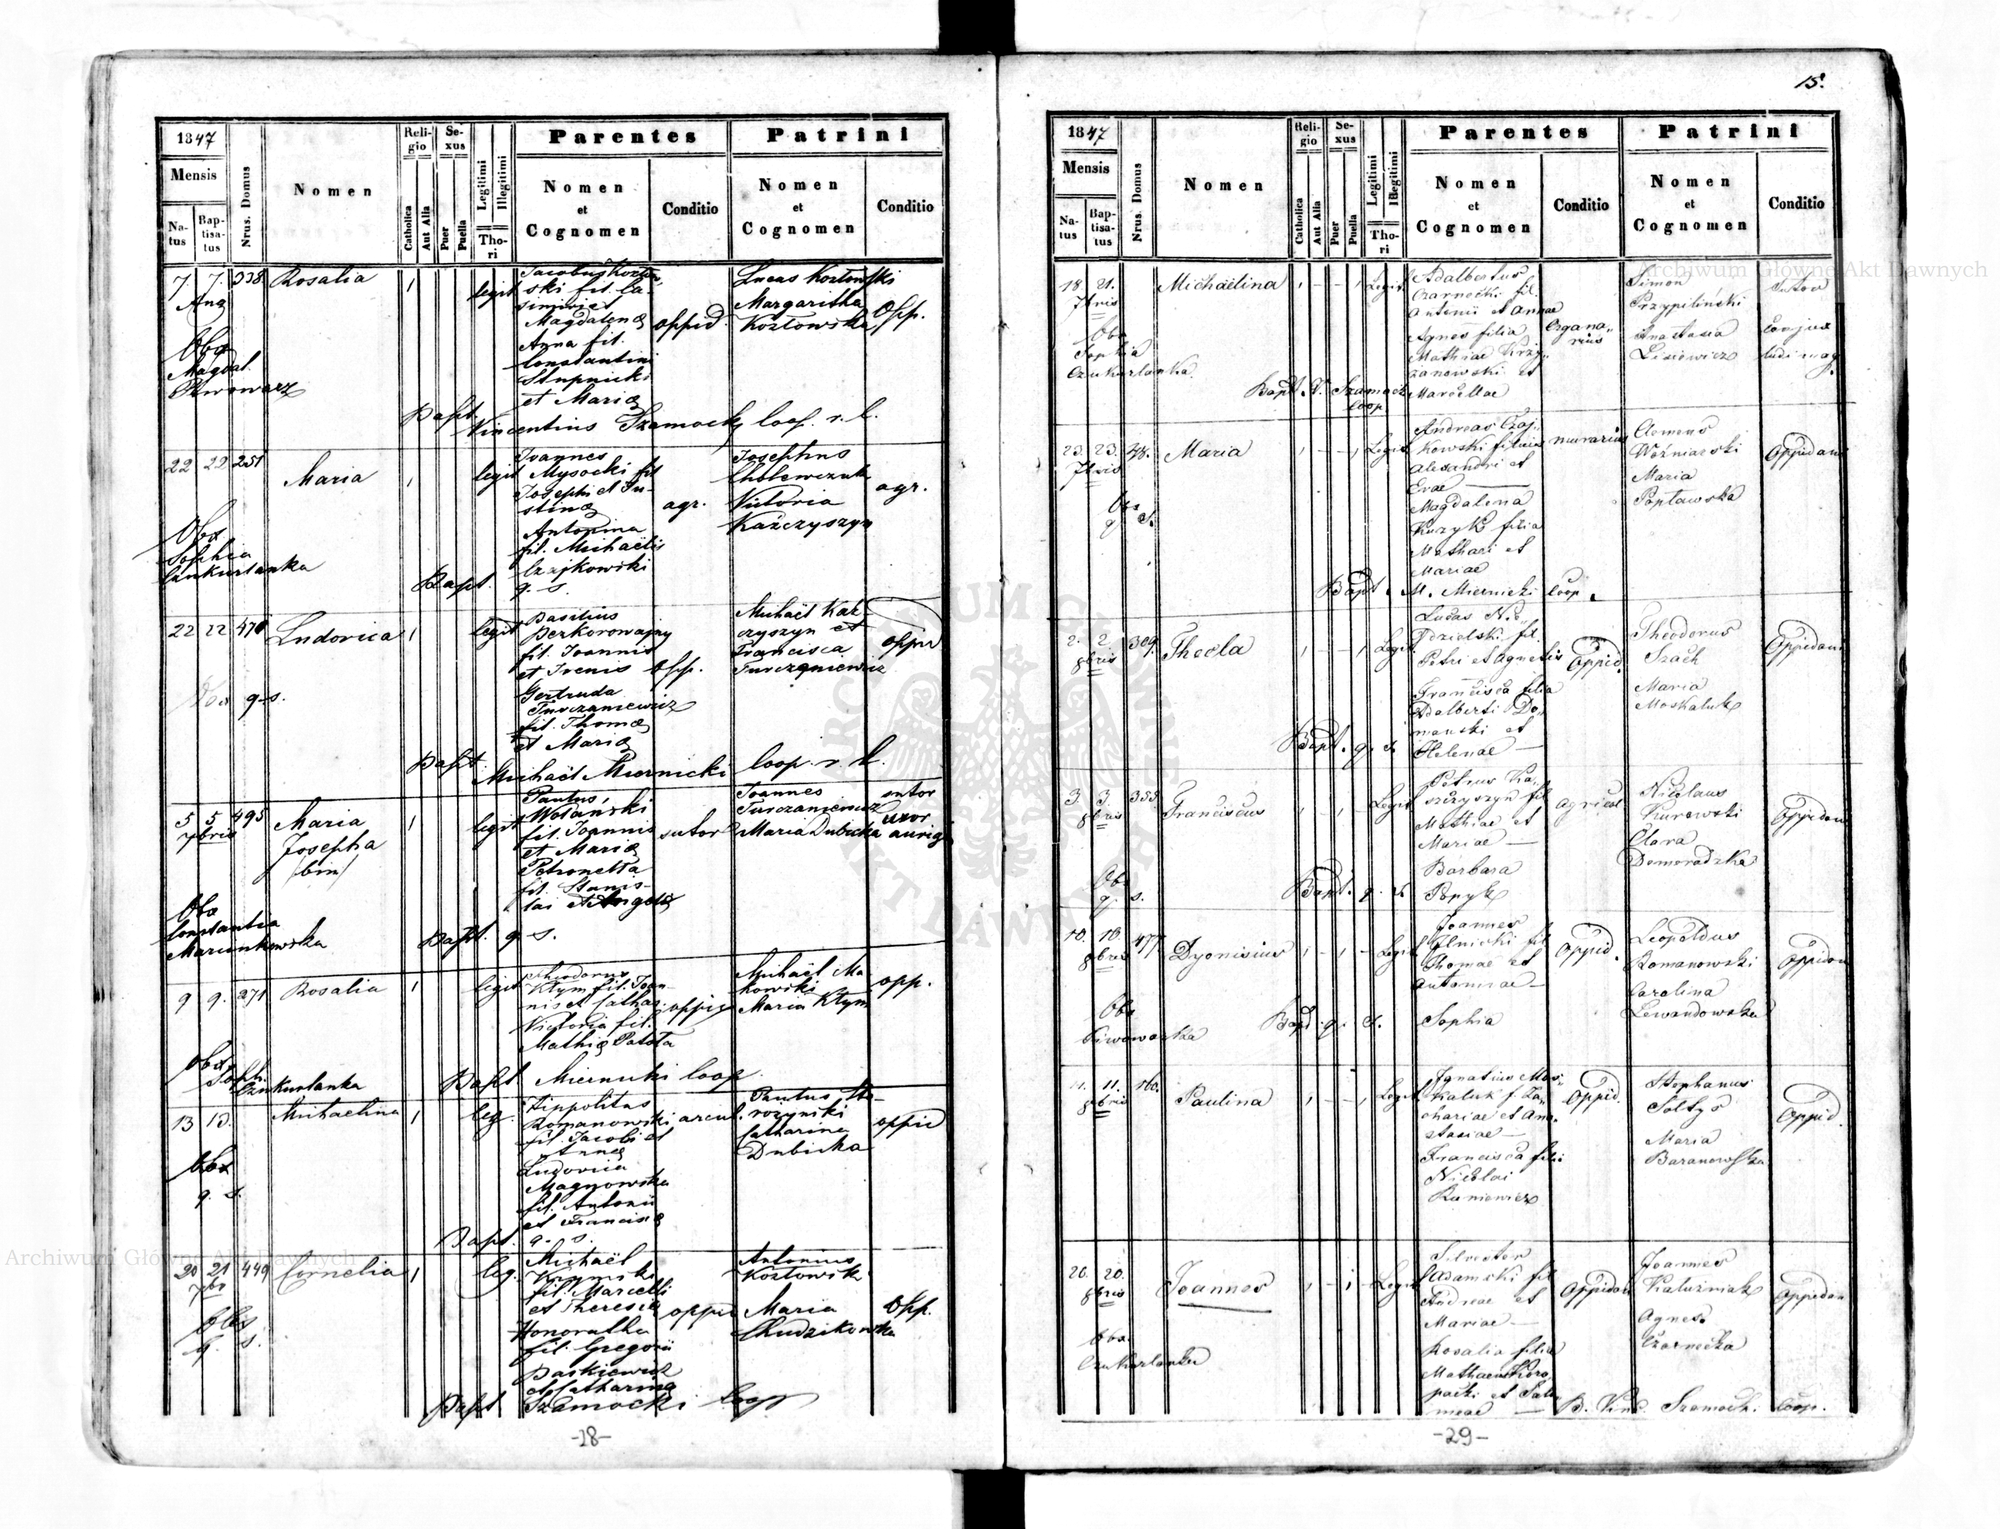 15.
1847
Mensis
Natus
Baptisatus
Nrus. Domus
Nomen
Religio
Catholica
Aut Alia
Sexus
Puer
Puella
Legitimi
Illegitimi
Thori
Parentes
Nomen
et
Cognomen
Conditio
Patrini
Nomen
et
Cognomen
Conditio
7 7. 338 Rosalia 1 legit
Aug
Jacobus Kozłow-
ski fil. Ca-
simiri et
Magdalenæ
Anna fil.
Constantini
Stupnicki
et Mariæ
oppid.
Lucas Kozłowski
Margaritha
Kozłowska
Opp.
Obs
Magdal.
Piwowarz
Bapt. Vincentius Szamocky coop. r. l.
22 22 251 Maria 1 legit
Joannes
Mysocki fil
Josephi et Ju-
stinæ
Antonina
fil. Michaëlis
Czajkowski
agr.
Josephus
Victoria
Kaźczyszyn
agr.
Obs
Sophia
Czukurlanka
Bapt. q. s.
22 22 478 Ludovica 1 legit
Basilius
Perkorowajny
fil. Joannis
et Irenis
Gertruda
Turczaniewicz
fil. Thomæ
et Mariæ
opp.
Michaël Kac-
zyszyn et
Francisca
Turczaniewicz
oppid
q. s.
Bapt. Michaël Miernicki coop. r. l.
5 5 495 Maria 1 legit
7bris
Josepha
(bin)
Paulus
Wolanski
fil. Joannis
et Mariæ
Petronella
fil. Stanis-
lai et Angelæ
sutor
Joannes
Turczaniewicz
Maria Dubicka
sutor
uxor
aurigæ
Obs
Constantia
Marcinkowska
Bapt. q. s.
9 9. 271 Rosalia 1 legit
Theodorus
Kłym fil. Joan-
nis et Cathar.
Victoria fil.
Mathiæ Patota
oppid
Michaël Ma-
kowski
Maria Kłym
opp.
Obs
Soph.
Czukurlanka
Bapt Miernicki coop.
13 13. Michaelina 1 leg.
Hippolitus
Romanowski
fil. Jacobi et
Annæ
Ludovica
Magnowska
fil. Antonii
et Franciscæ
arcul.
Paulus
Catharina
Dubicka
oppid
Obs
q. s.
Bapt. q. s.
20 21 449 Cornelia 1 leg.
7bris
Michaël
Krzymski
fil. Marcelli
et Theresiæ
Honoratha
fil. Gregorii
Baskiewicz
et Catharinæ
oppid
Antonius
Kozłowski
Maria
Chudzikowska
Opp.
Obs
q. s.
Bapt Szamocki Coop
-28-
1847
Mensis
Natus
Baptisatus
Nrus. Domus
Nomen
Religio
Catholica
Aut Alia
Sexus
Puer
Puella
Legitimi
Illegitimi
Thori
Parentes
Nomen
et
Cognomen
Conditio
Patrini
Nomen
et
Cognomen
Conditio
18. 21. Michaëlina 1 - - 1 Legit
7bris
Adalbertus
Czarnecki fil.
Antonii et Annae
Agnes filia
Mathiae Krzy-
żanowski et
Marcellae
Organa-
rius
Simon
Przypiliński
Anastasia
Lisiewicz
Sutor
Conjux
ludi mag.
Obs
Sophia
Czukurlanka.
Bapt. V. Szamock
coop
23. 23. 48. Maria 1 - - 1 Legit
7bris
Andreas Czaj-
kowski filius
Alexandri et
Evae
Magdalena
Kuzyk filia
Mathaei et
Mariae
murarius
Clemens
Woźniarski
Maria
Popławska
Oppidani
Obs
q. s.
Bapt. M. Miernicki coop.
2. 2 309. Thecla 1 - - 1 Legit
8bris
Lucas Nie-
dzielski fil.
Petri et Agnetis
Francisca filia
Adalberti Do-
manski et
Helenae
Oppid.
Theodorus
Szach
Maria
Moskaluk
Oppidani
Bapt. q. s.
3. 3. 355. Franciscus 1 - 1 - Legit
8bris
Petrus Ka-
szczyszyn fil
Mathiae et
Mariae
Barbara
Popyk
agricol
Nicolaus
Kurowski
Clara
Domoradzka
Oppidani
Obs
q. s.
Bapt. q. s.
10. 10. 477 Dyonisius 1 - 1 - Legit
8bris
Joannes
Ilnicki fil
Thomae et
Antoninae
Sophia
Oppid.
Leopoldus
Romanowski
Carolina
Lewandowska
Oppidan
Obs
Piwowarka
Bapt. q. s.
11. 11. 160. Paulina 1 - - 1 Legit
8bris
Ignatius Mos-
kaluk f. Za-
chariae et Ana-
stasiae
Francisca filia
Nicolai
Runiewicz
Oppid.
Stephanus
Sołtys
Maria
Baranowska
Oppid.
20. 20. Joannes 1 - 1 - Legit
8bris
Silvester
Adamski fil
Andreae et
Mariae
Rosalia filia
Mathaei Koro-
packi et Salo-
meae
Oppidan
Joannes
Kałużniak
Agnes
Czarnecka
Oppidan
Obs.
Czukurlanka
B. Vinc. Szamock. coop.
-29-
Archiwum Główne Akt Dawnych
Archiwum Główne Akt Dawnych
ARCHIWUM GŁÓWNE AKT DAWNYCH